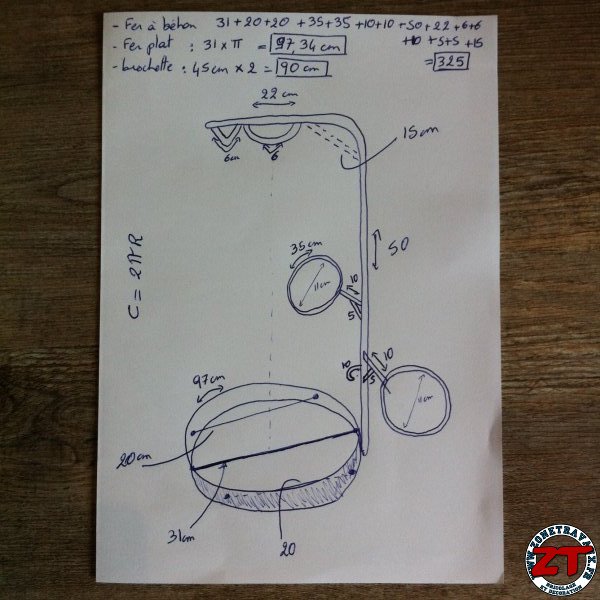 - Fer à béton 31+20+20 +35+35 +10+10 +50 +22 +6+6
+10 +5+5 +15
= 325
- Fer plat : 31 x π = 97,34 cm
- brochette : 45cm x 2 = 90 cm
22 cm
15cm
6cm
6
50
35cm
10
11cm
5
C = 2πR
10
10
5
11cm
97cm
20cm
31cm
20
WWW.ZONETRAVAUX.FR
ZT
BRICOLAGE
ET DECORATION